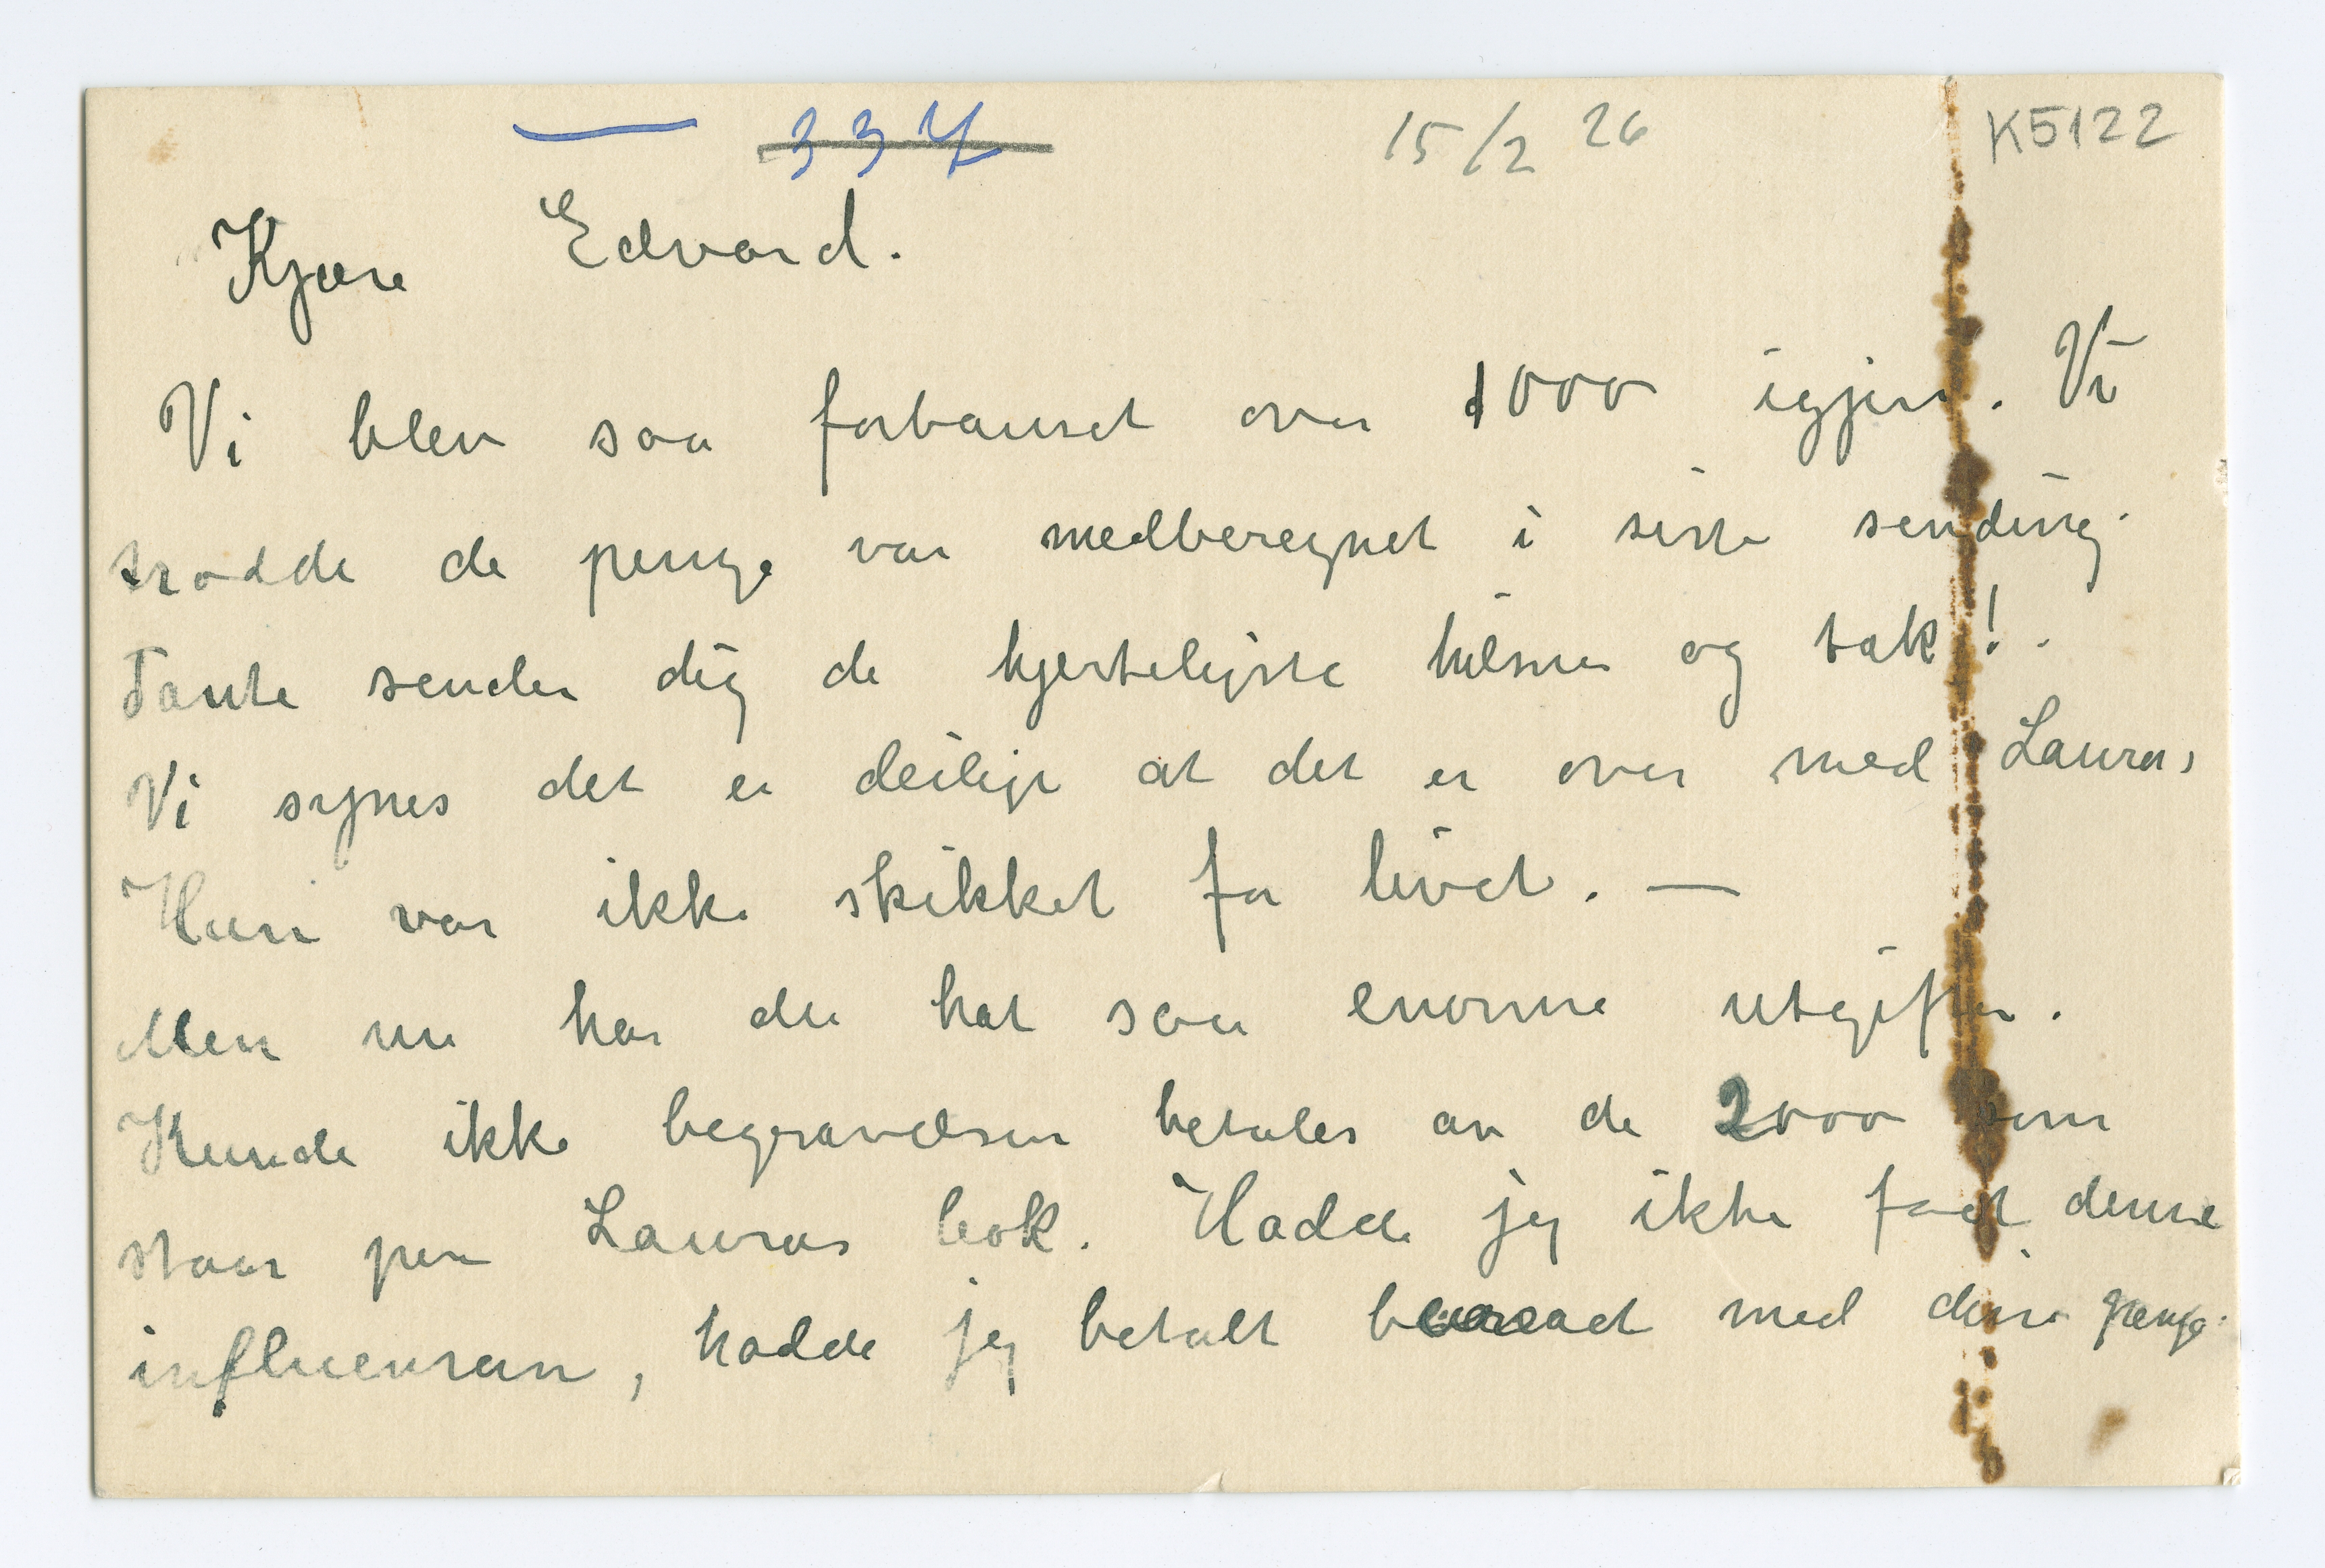 337 15/2 26 K5122
Kjære Edvard.
Vi blev saa forbauset over 1000 igjen. Vi
trodde de penge var medberegnet i siste sending.
Tante sender dig de hjerteligste hilsner og tak!.
Vi synes det er deiligt at det er over med Laura,
Hun var ikke skikket for livet. —
Men nu har du hat saa enorme utgifter.
Kunde ikke begravelsen betales av de 2000 som
staar paa Lauras bok. Hadde jeg ikke faat denne
influensaen, hadde jeg betalt med disse penge.